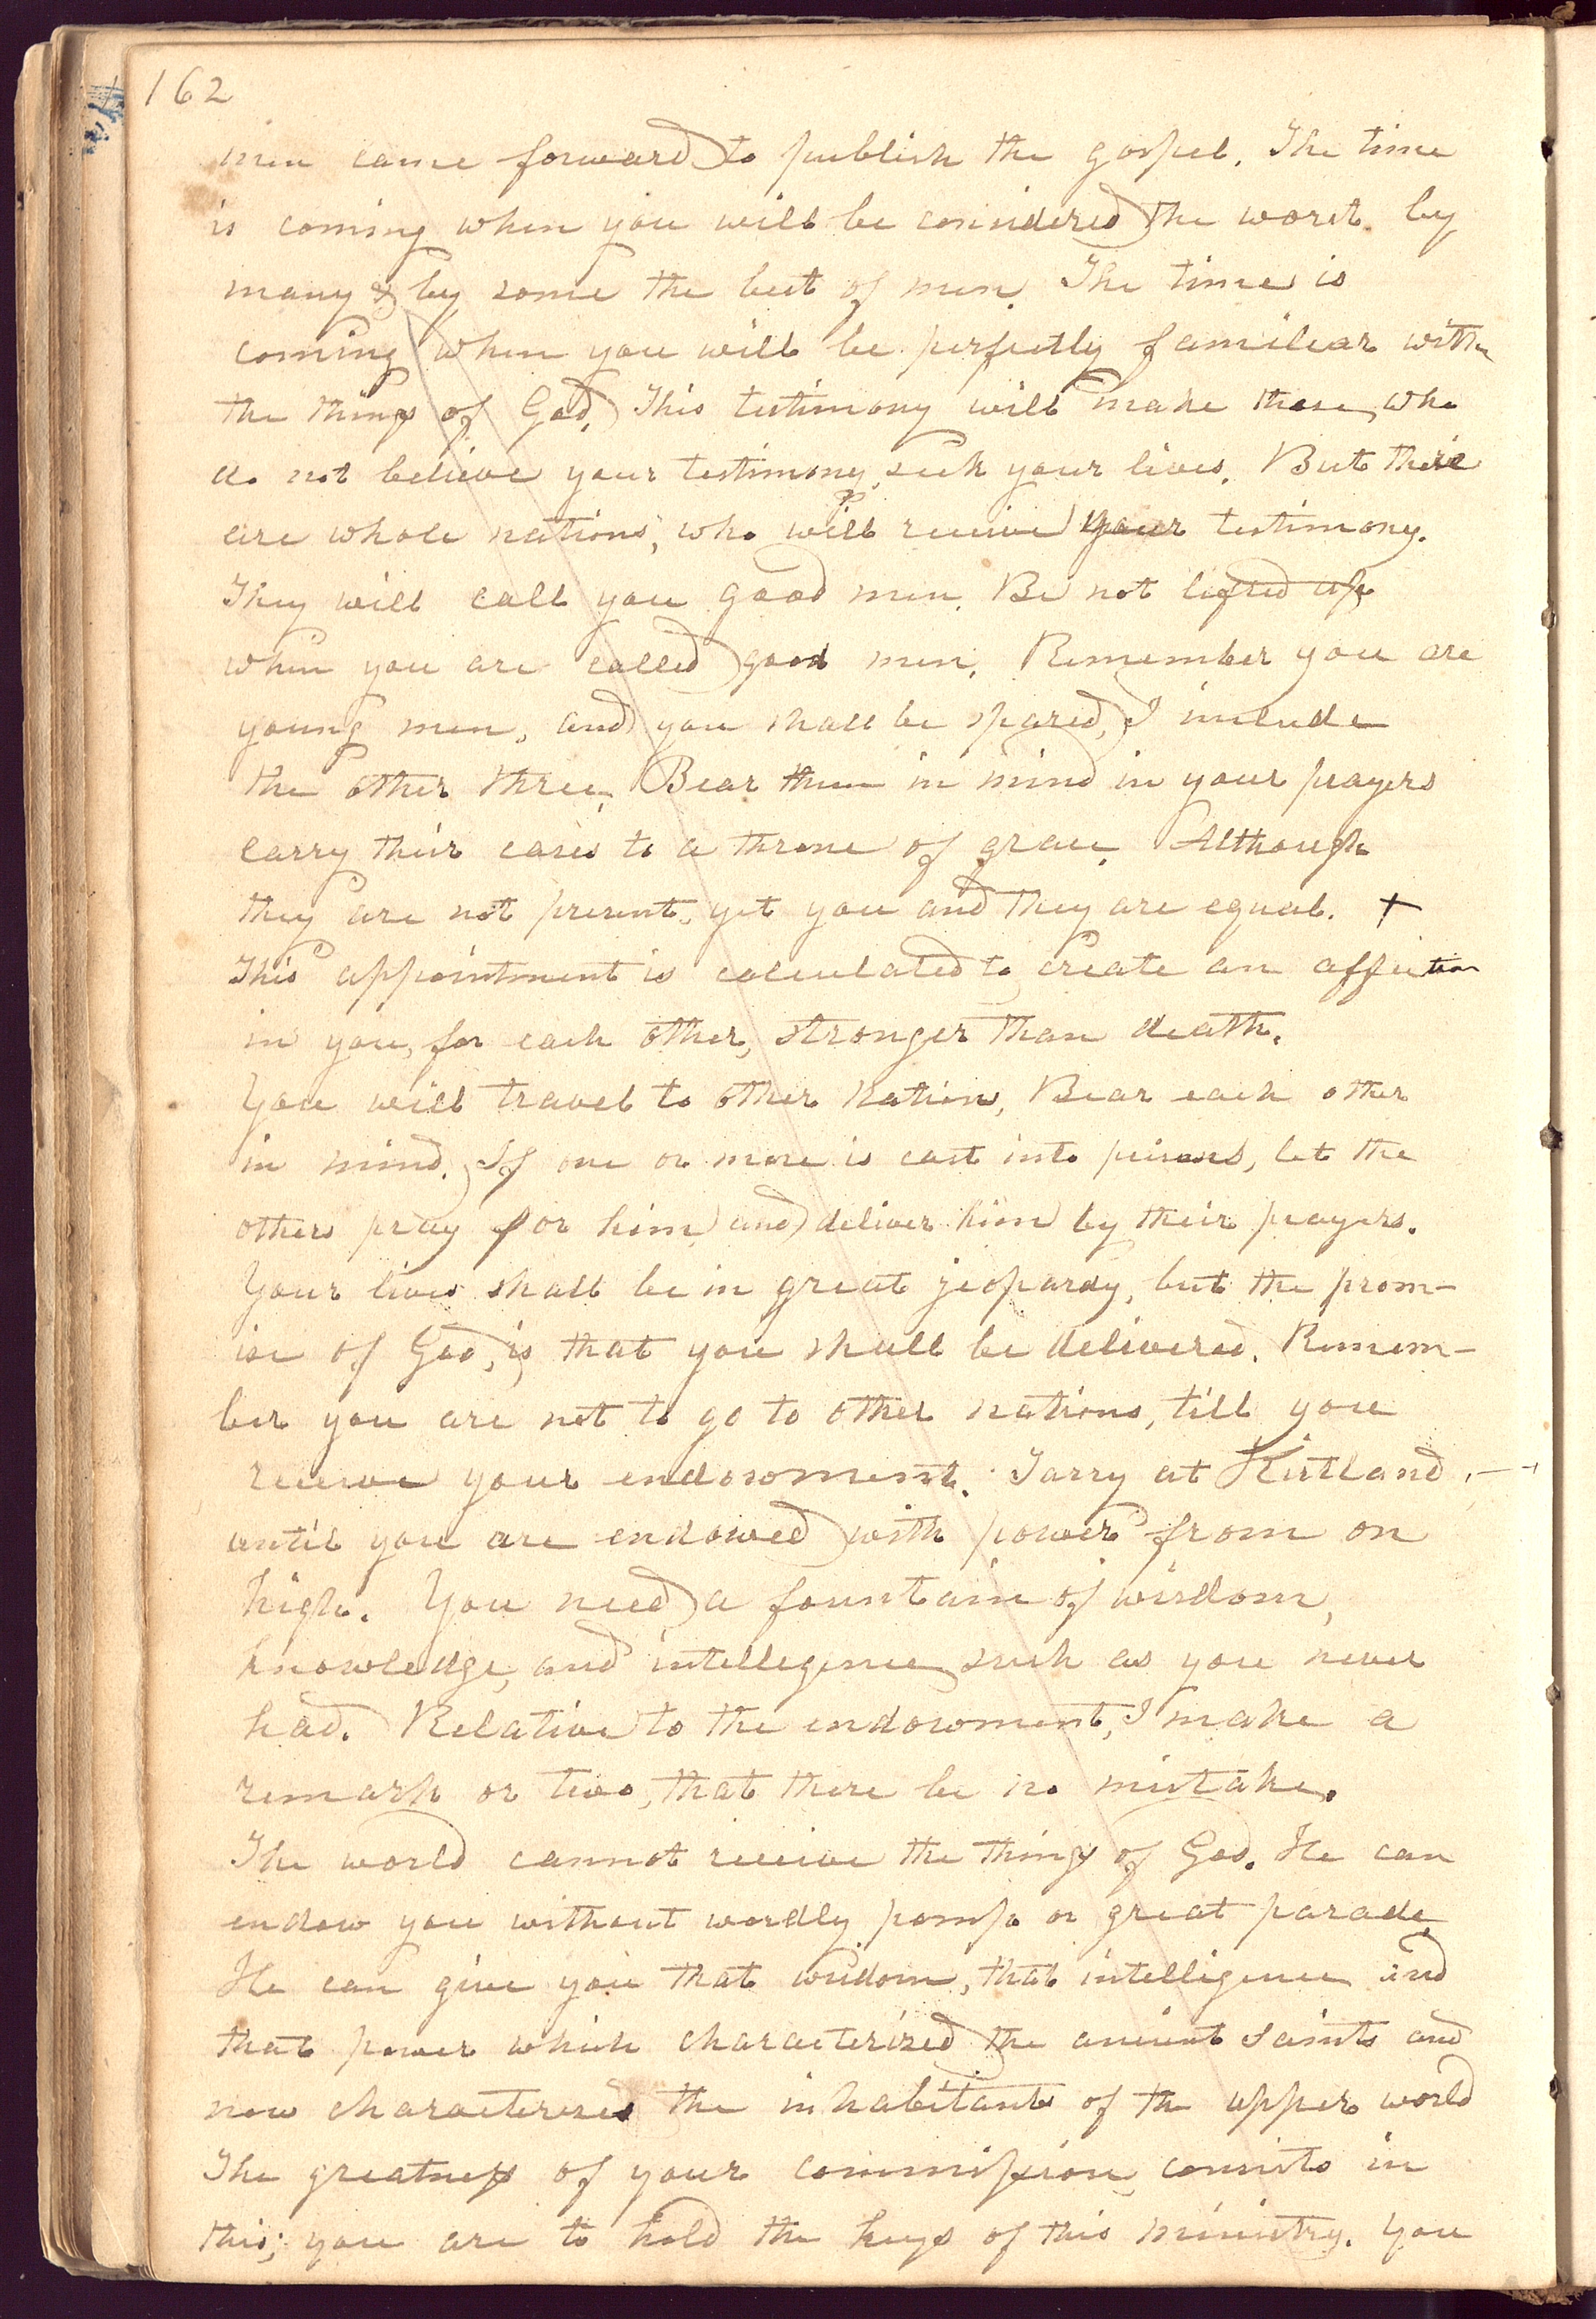 162
men came forward to publish the gospel. The time
is coming when you will be considered the worst by
many & by some the best of men. The time is
coming when you will be perfectly familiar with
the things of God. This testimony will make those, who
do not believe your testimony, seek your lives. But there
are whole nations, who will receive your testimony.
They will call you good men. Be not lifted up
when you are called good men. Remember you are
young men, and you shall be spared. I include
the other three. Bear them in mind in your prayers
carry their cases to a throne of grace. Although
they are not present, yet you and they are equal. +
This appointment is calculated to create an affection
in you, for each other, stronger than death.
You will travel to other nations, Bear each other
in mind. If one or more is cast into prisons, let the
others pray for him and deliver him by their prayers.
Your lives shall be in great jeopardy, but the prom-
ise of God, is, that you shall be delivered. Remem-
ber you are not to go to other nations, till you
receive your endowment. Tarry at Kirtland,
until you are endowed with power from on
high. You need a fountain of wisdom,
knowledge, and intellegence such as you never
had. Relative to the endowment, I make a
remark or two, that there be no mistake.
The world cannot receive the things of God. He can
endow you without wordly pomp or great parade
He can give you that wisdom, that intelligence and
that power which characterized the ancient saints and
now characterizes the inhabitants of the upper world
The greatness of your commission, consists in
this; you are to hold the keys of this ministry. You